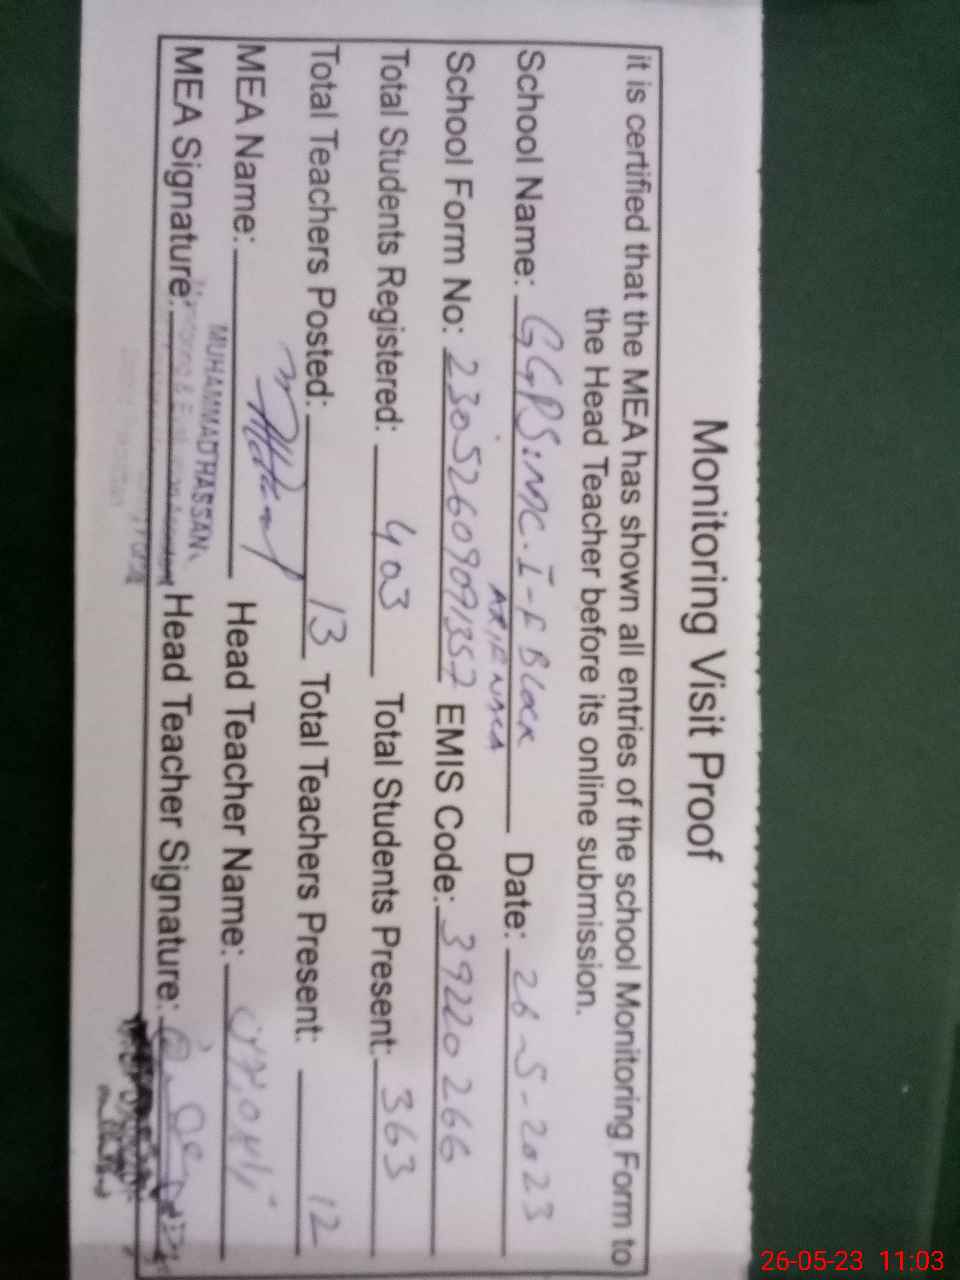 Monitoring Visit Proof
it is certified that the MEA has shown all entries of the school Monitoring Form to
the Head Teacher before its online submission.
School Name: GGPS:MC.I-F Block Date: 26-5-2023
ARIFWALA
School Form No: 230526090913​57 EMIS Code: 39220266
Total Students Registered: 403 Total Students Present: 363
Total Teachers Posted: 13 Total Teachers Present: 12
MEA Name: Head Teacher Name:
MUHAMMAD HASSAN
MEA Signature: Head Teacher Signature:
26-05-23 11:03